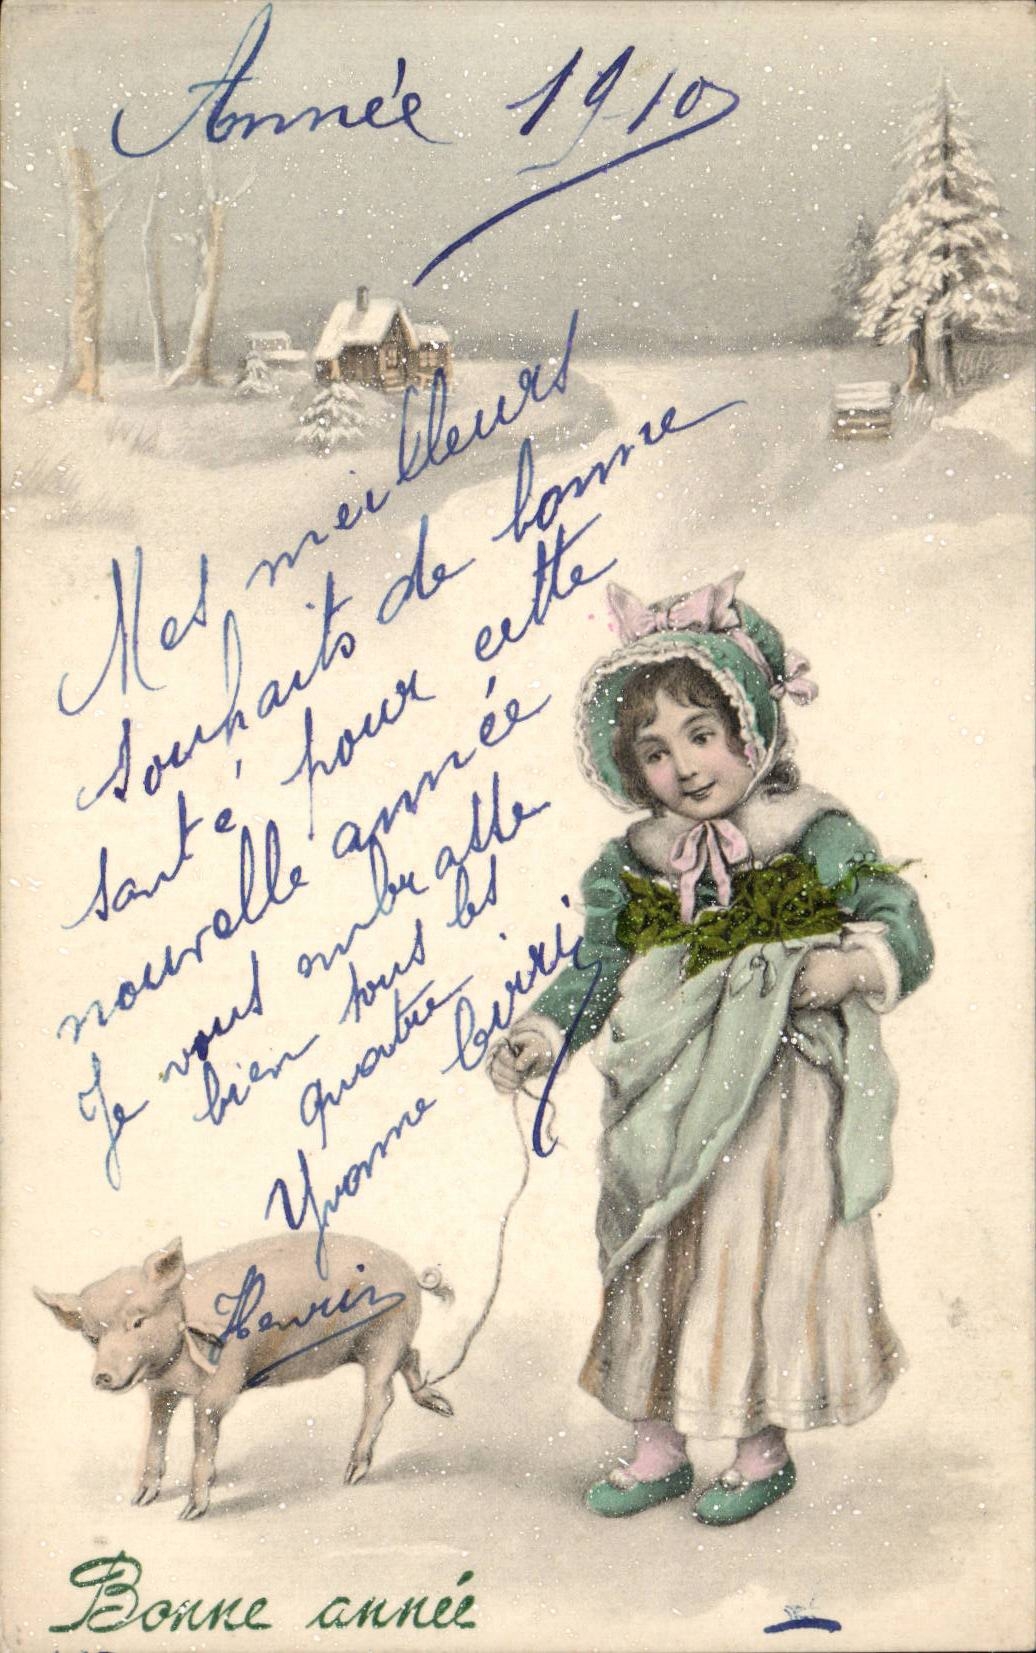 Année 1910
Mes meilleurs
souhaits de bonne
santé pour cette
nouvelle année
Je vous embrasse
bien tous les
quatre
Yvonne
Henri
Bonne année